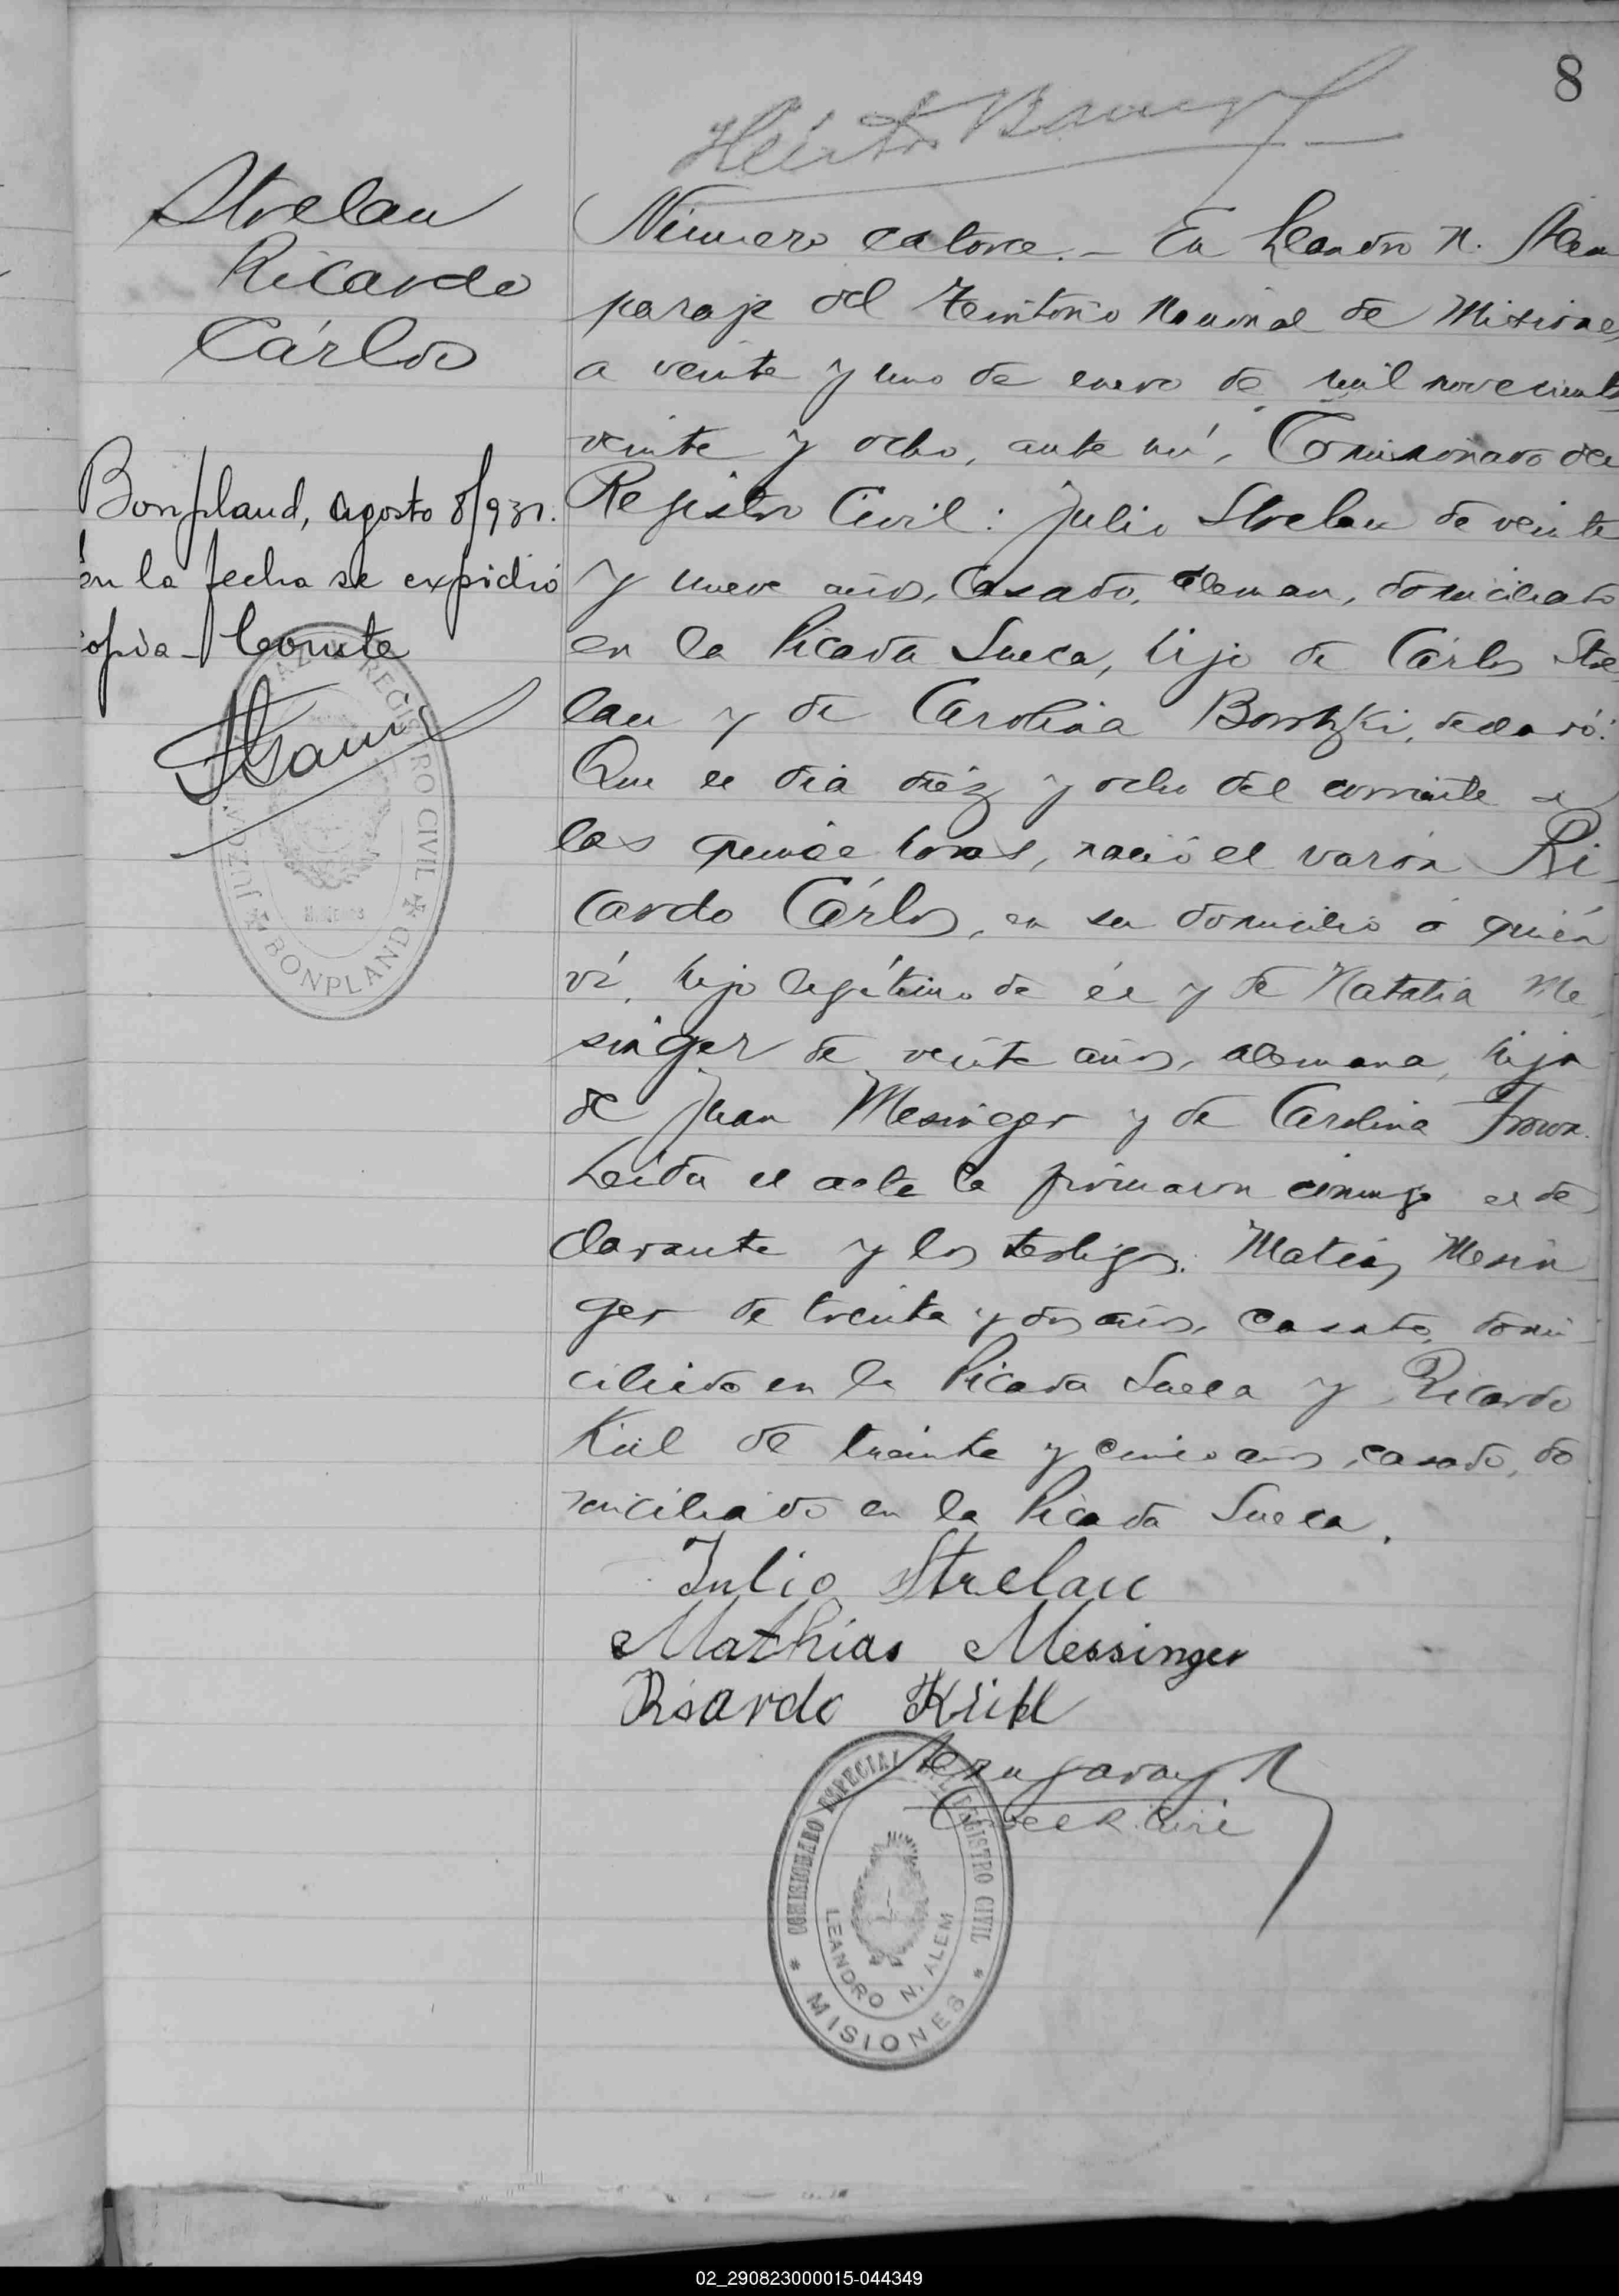 8
Héctor
Strelau
Ricardo
Cárlos
Bonpland, agosto 8/931.
en la fecha se expidió
copia. Conste
JUZGADO DE PAZ Y REGISTRO CIVIL
MISIONES
BONPLAND
Número catorce.- En Leandro N. Alem
paraje del Territorio Nacional de Misiones,
a veinte y uno de enero de mil novecientos
veinte y ocho, ante mí, Comisionado del
Registro Civil: Julio Strelau de veinte
y nueve años, casado, aleman, domiciliado
en la Picada Sueca, hijo de Cárlos Stre
lau y de Carolina, declaró:
Que el dia diéz y ocho del corriente a
las quince horas, nació el varón Ri-
cardo Cárlos, en su domicilio á quién
ví, hijo legítimo de él y de Natalia Me
singer de veinte años, alemana, hija
de Juan Mesinger y de Carolina
Leida el acta la firmaron conmigo el de
clarante y los testigos: Matias Mesin
ger de treinta y dos años, casado, domi
ciliado en la Picada Sueca y Ricardo
Kiil de treinta y cinco años, casado, do
miciliado en la Picada Sueca.
Julio Strelau
Mathias Messinger
Risardo
COMISIONADO ESPECIAL DEL REGISTRO CIVIL
LEANDRO N. ALEM
* MISIONES *
02_290823000015-044349